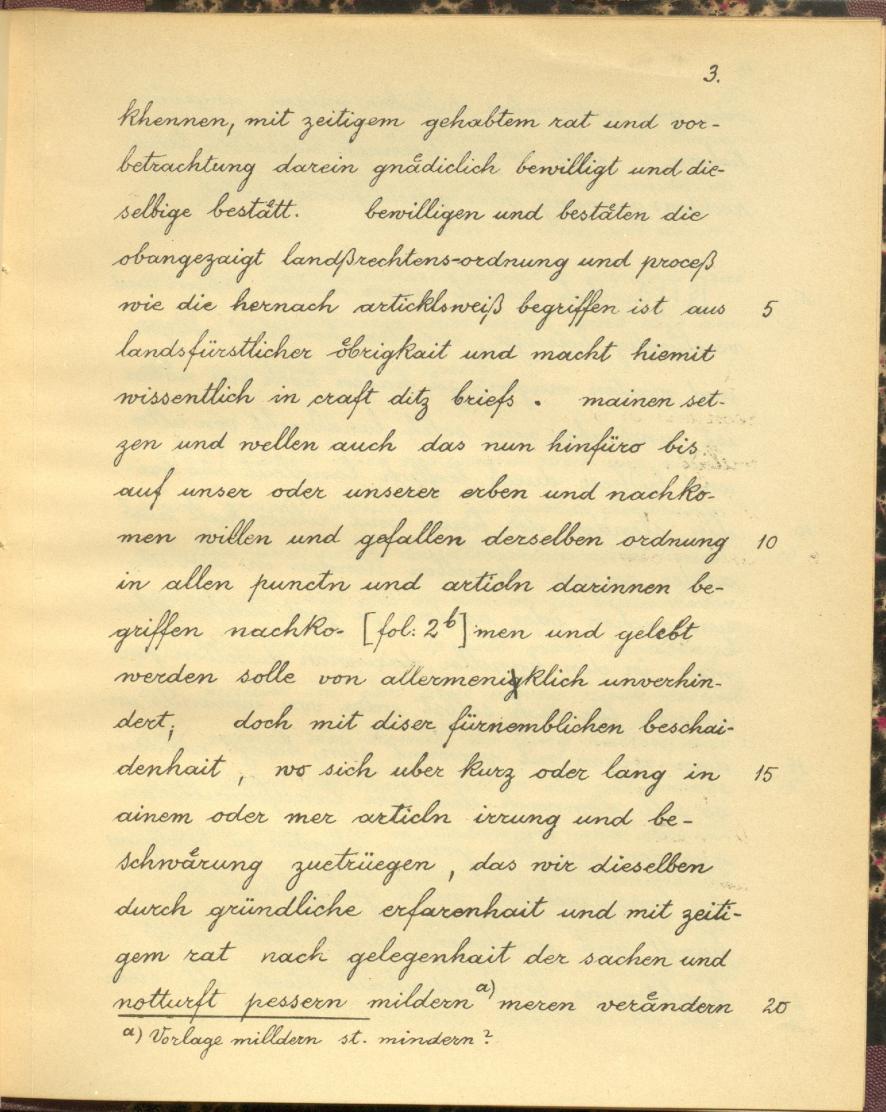 3.
khennen, mit zeitigem gehabtem rat und vor-
betrachtung darein gnaͤdiclich bewilligt und die-
selbige bestaͤtt. bewilligen und bestaͤten die
obangezaigt landßrechtens-ordnung und proceß
wie die hernach articklsweiß begriffen ist aus 5
landsfürstlicher oͤbrigkait und macht hiemit
wissentlich in craft ditz briefs. mainen set-
zen und wellen auch das nun hinfüro bis
auf unser oder unserer erben und nachko-
men willen und gefallen derselben ordnung 10
in allen punctn und articln darinnen be-
griffen nachko- [fol: 2b] men und gelebt
werden solle von allermenigklich unverhin-
dert; doch mit diser fürnemblichen beschai-
denhait, wo sich uber kurz oder lang in 15
ainem oder mer articln irrung und be-
schwaͤrung zuetrüegen, das wir dieselben
durch gründliche erfarenhait und mit zeiti-
gem rat nach gelegenhait der sachen und
notturft pessern mildern a) meren veraͤndern 20
a) Vorlage milldern st. mindern?